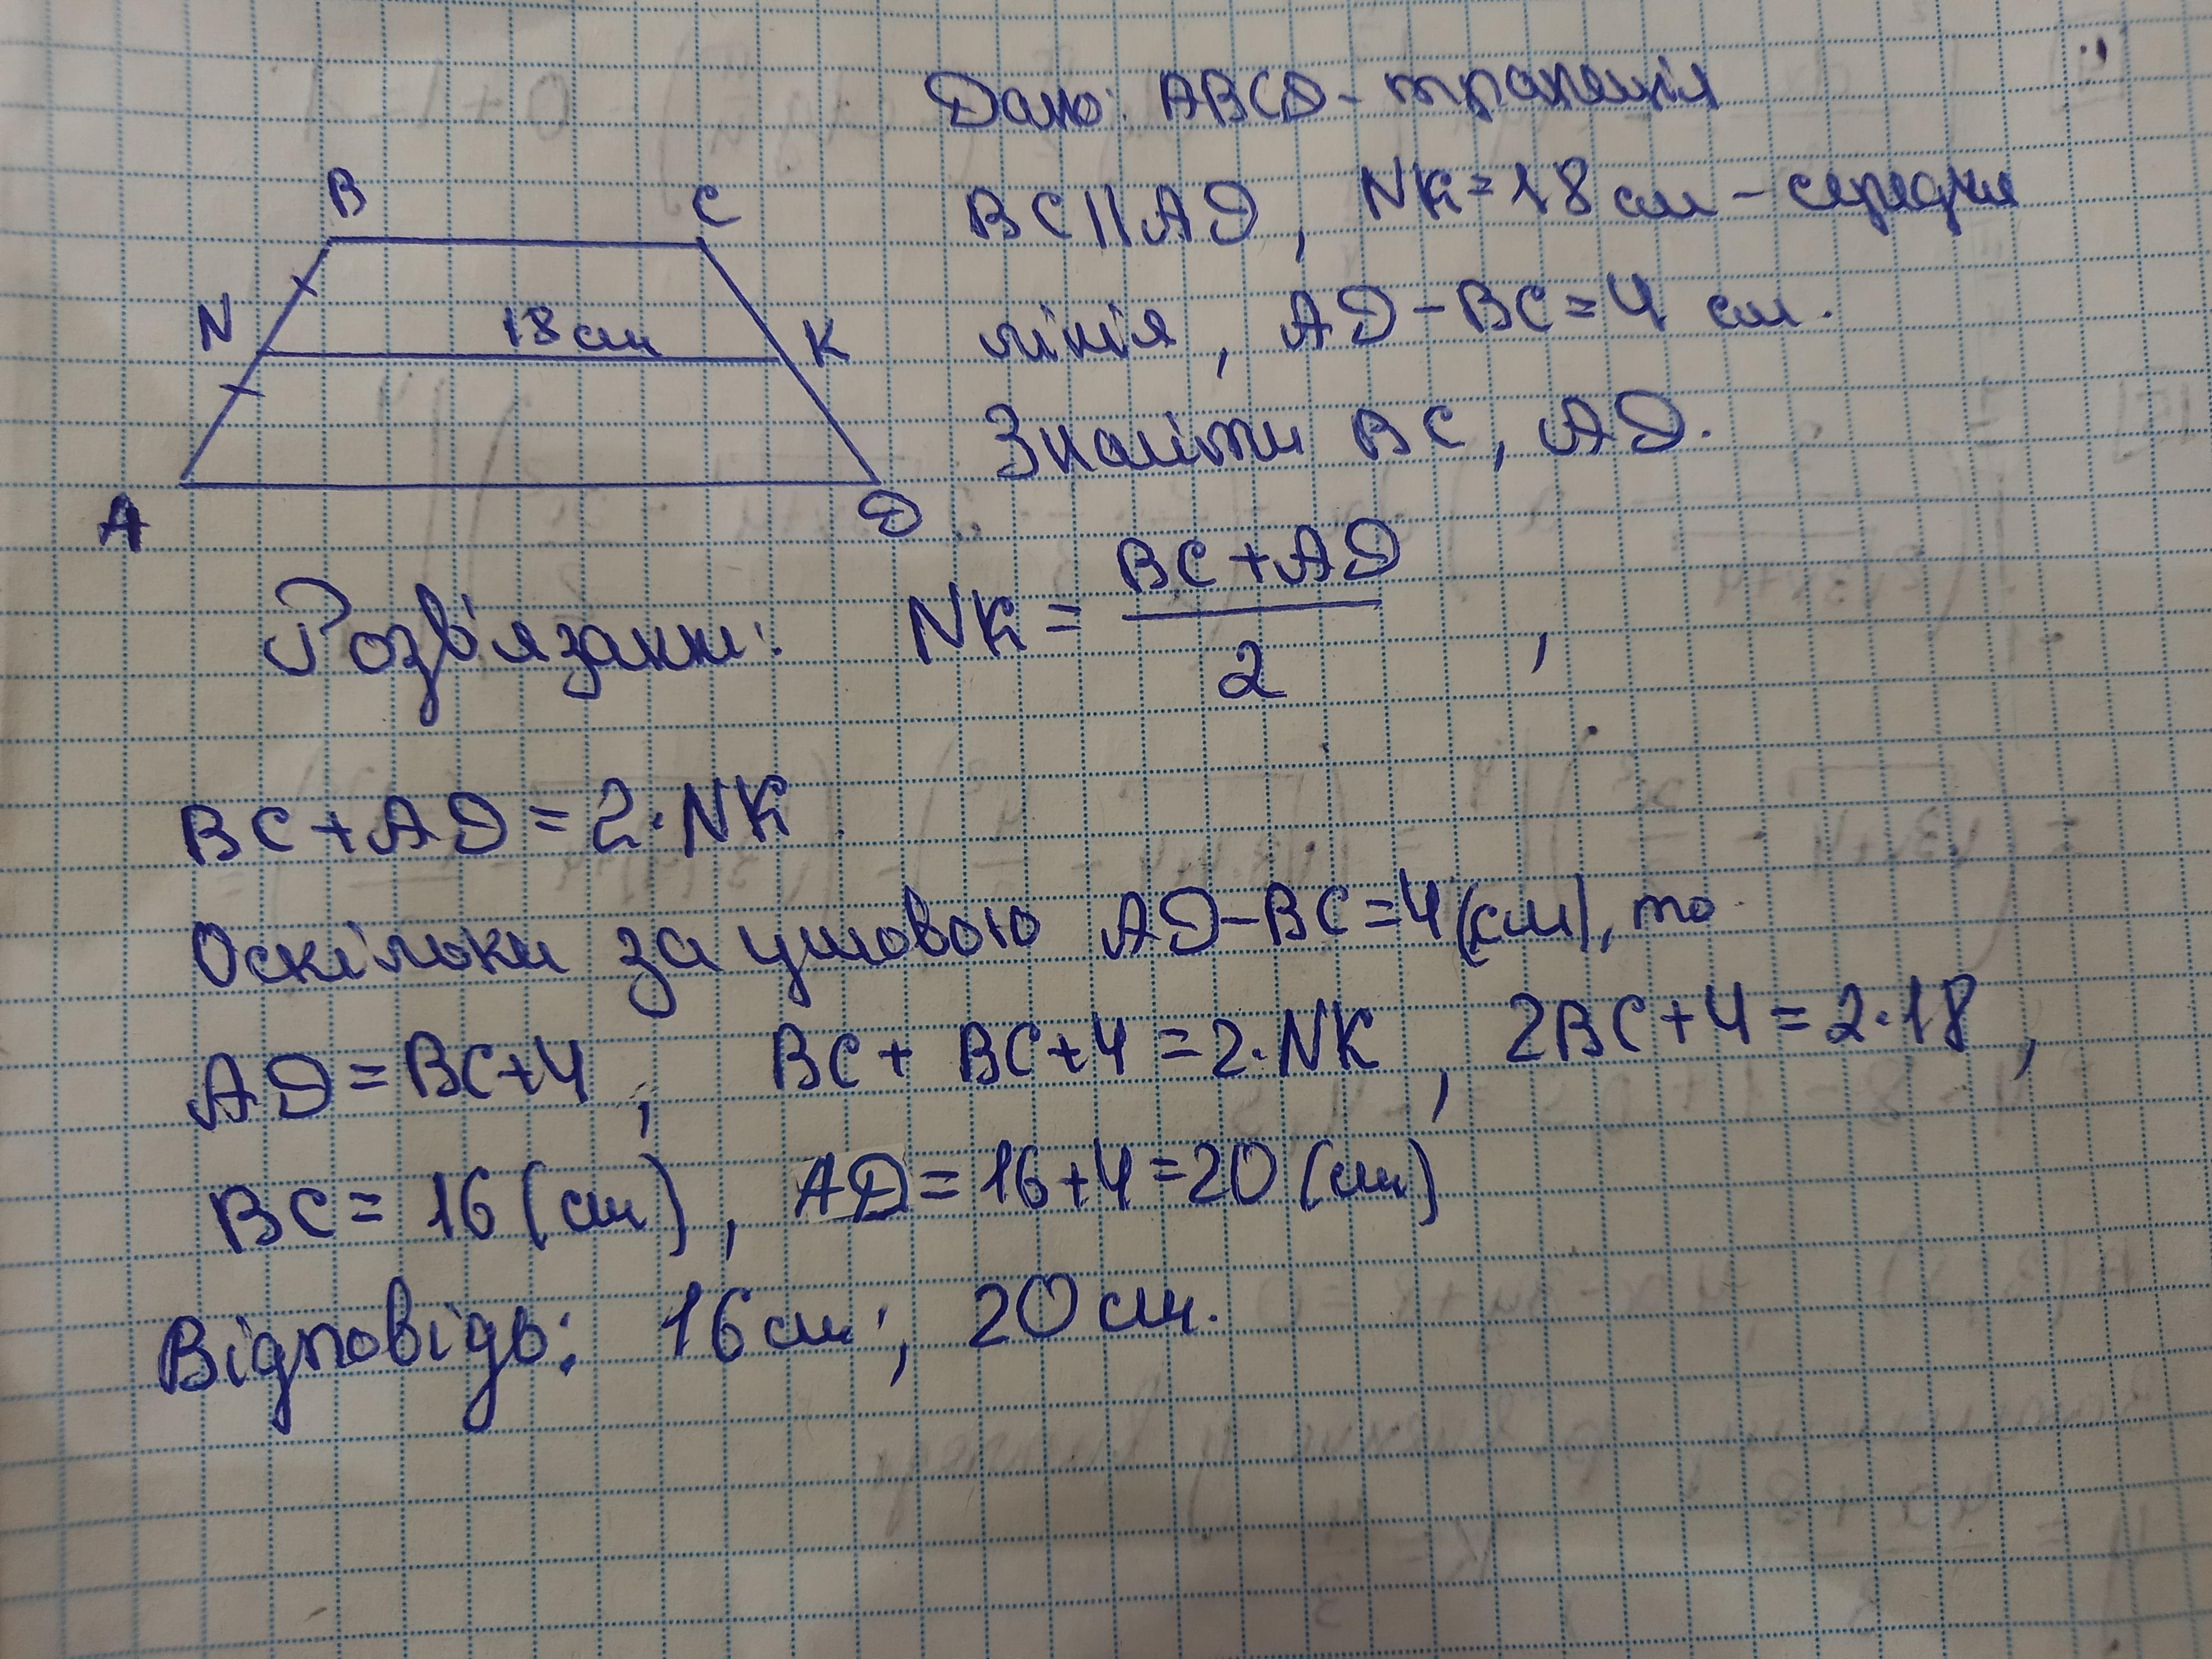 Дано: ABCD - трапеція
BC||AD, NK=18 см - середня
лінія, AD-BC=4 см.
Знайти BC, AD.
B
C
N
18 см
K
A
D
Розв'язання: NK = (BC+AD)/2,
BC+AD=2·NK
Оскільки за умовою AD-BC=4(см), то
AD=BC+4, BC+BC+4=2·NK, 2BC+4=2·18,
BC=16(см), AD=16+4=20(см)
Відповідь: 16см; 20см.